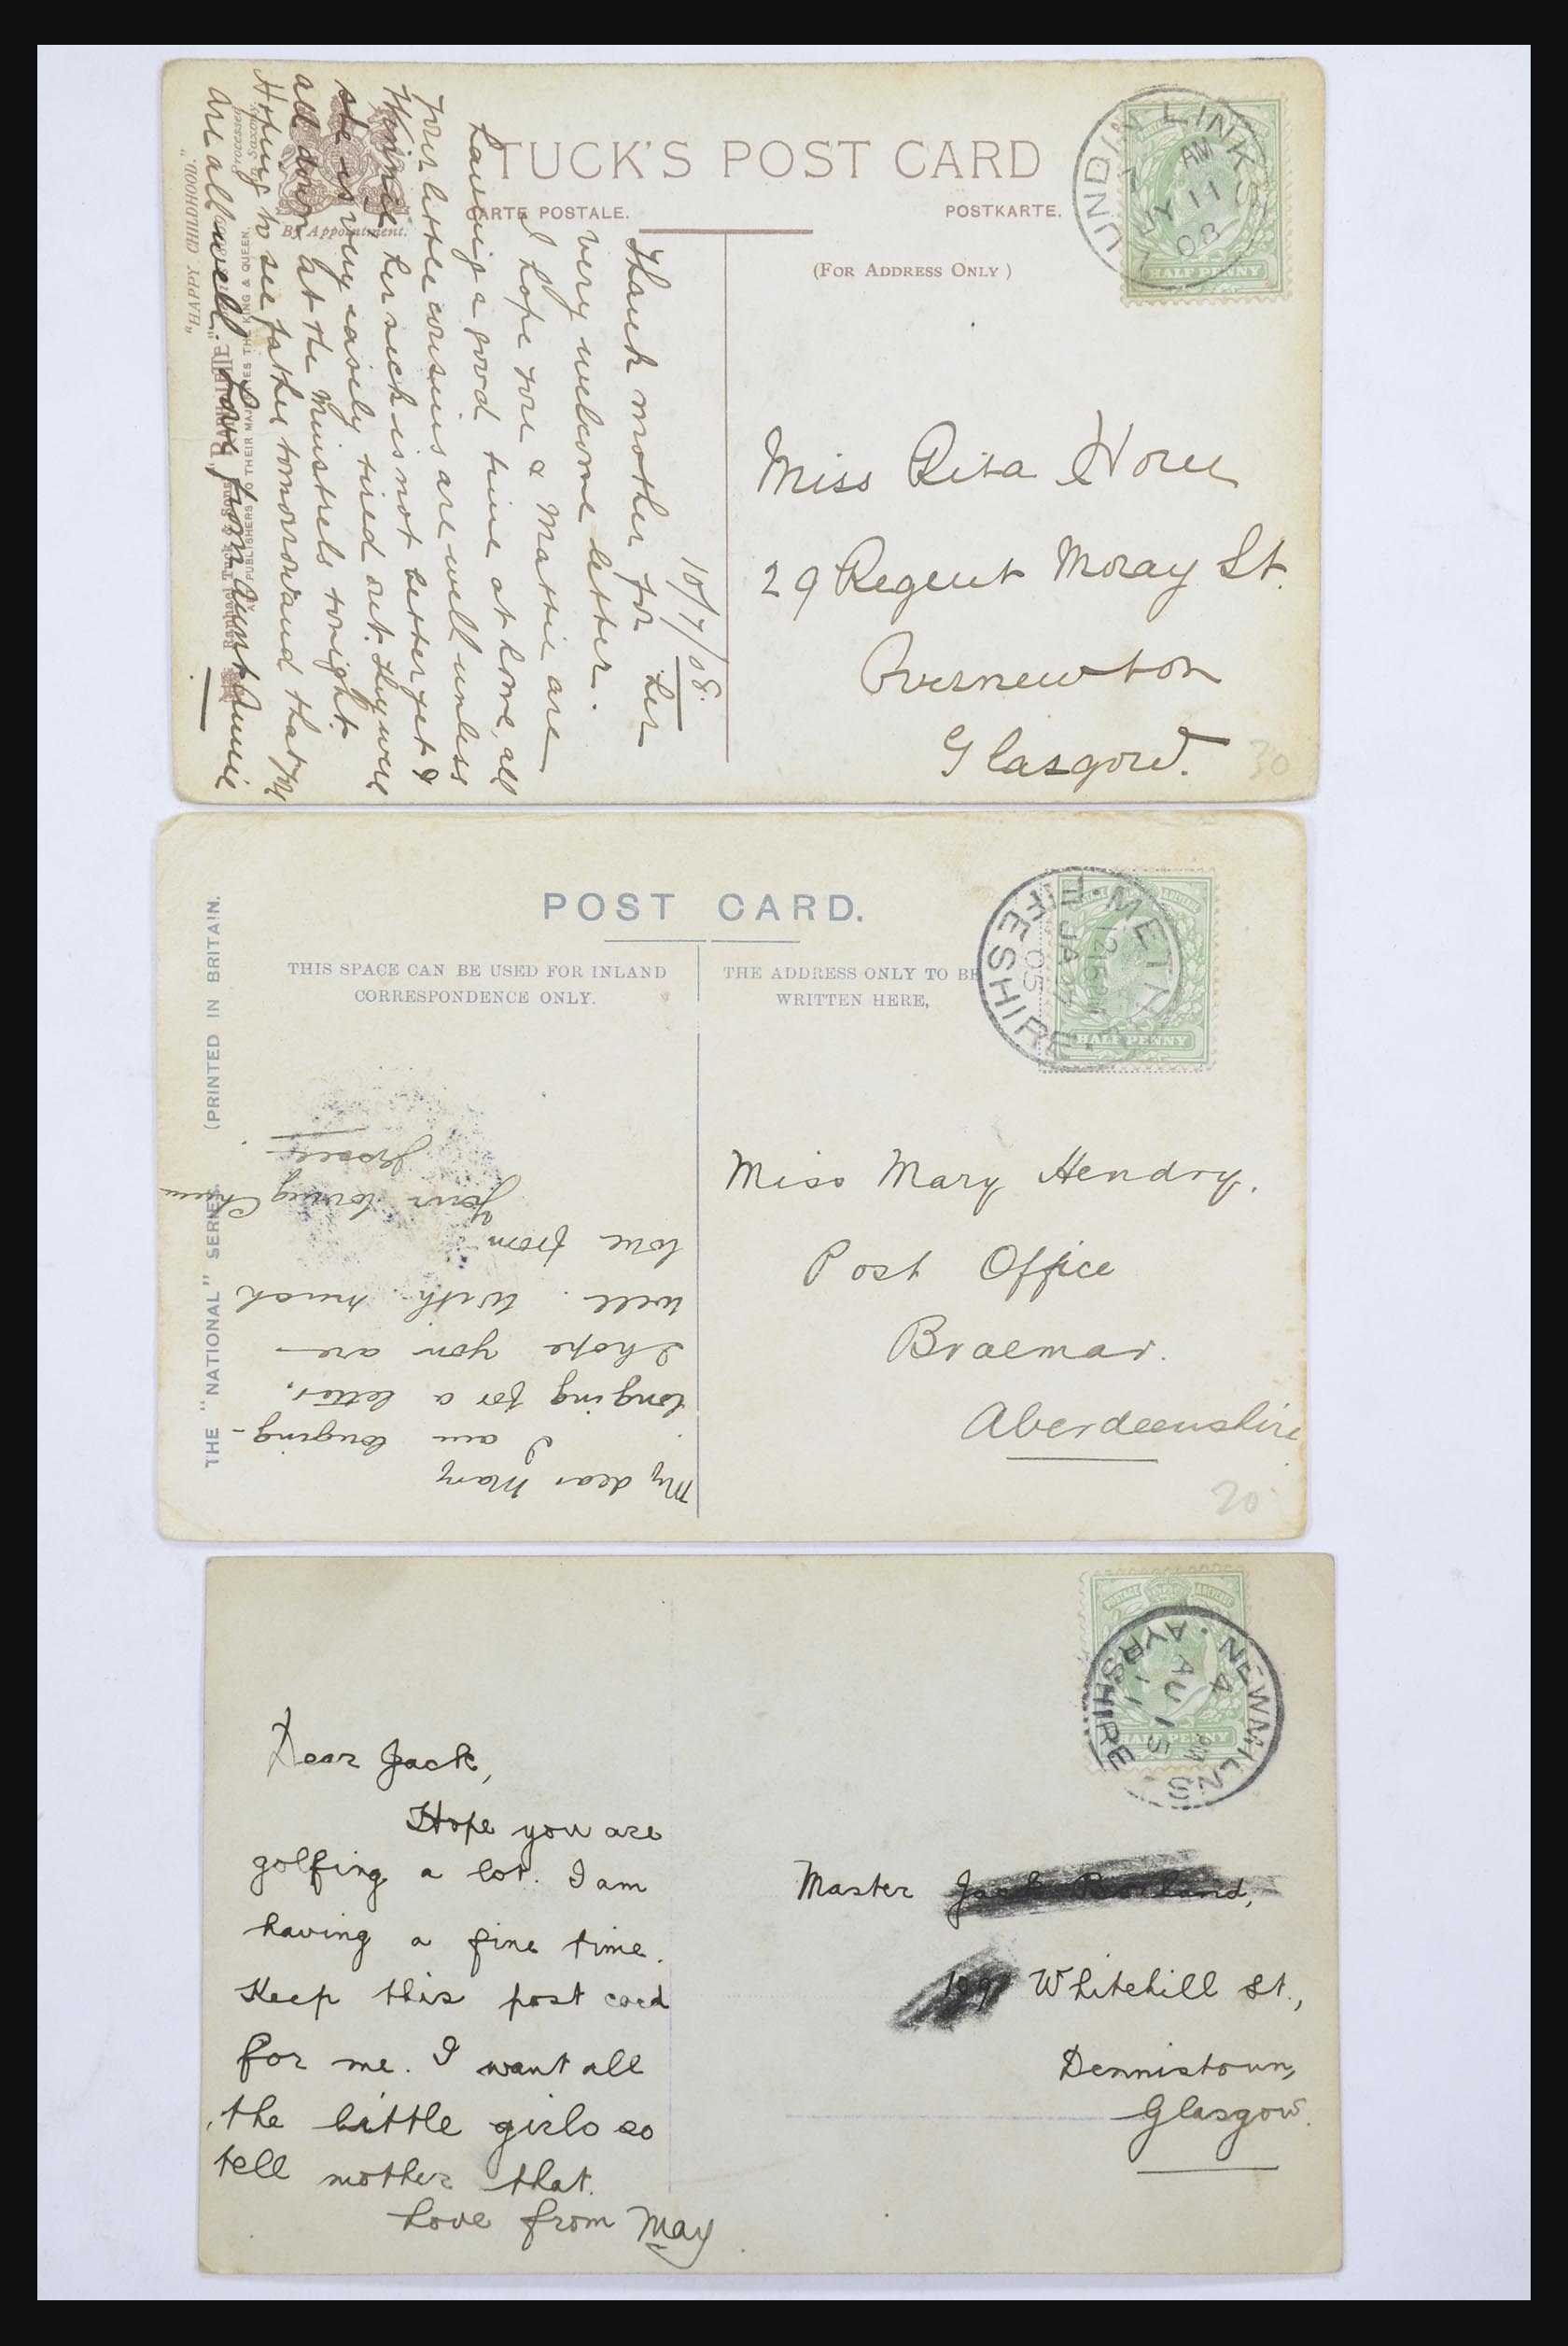 TUCK'S POST CARD
CARTE POSTALE.
POSTKARTE.
By Appointment.
(FOR ADDRESS ONLY)
LINKS
AM
JY 11
08
HALF PENNY
"HAPPY CHILDHOOD."
Processed
Saxony.
PUBLISHERS TO THEIR MAJESTIES THE KING & QUEEN.
Raphael Tuck & Sons'
10/7/08.
Thank mother for her
very welcome letter.
I hope you & Mattie are
having a good time at home, all
your little cousins are well unless
Winnie her neck is not better yet &
she is very easily tired out. they were
all down at the Minstrels tonight.
Hoping to see father tomorrow and that you
are all well. Love from Aunt
Miss Rita
29 Regent Moray St.
Overnewton
Glasgow.
30
POST CARD.
THIS SPACE CAN BE USED FOR INLAND
CORRESPONDENCE ONLY.
THE ADDRESS ONLY TO BE
WRITTEN HERE,
THE "NATIONAL" SERIES.
(PRINTED IN BRITAIN.
FIFESHIRE
1215PM
JA
05
HALF PENNY
My dear Mary
I am longing-
longing for a letter.
I hope you are
well. With much
love from
Your loving Chum
Miss Mary Hendry.
Post Office
Braemar.
Aberdeenshire
20
POSTAGE REVENUE
NEWMILNS
AYRSHIRE
4 PM
AU 15
11
HALF PENNY
Dear Jack,
Hope you are
golfing a lot. I am
having a fine time.
Keep this post card
for me. I want all
the little girls so
tell mother that.
Love from May
Master Jack
Whitehill St.,
Dennistoun,
Glasgow.